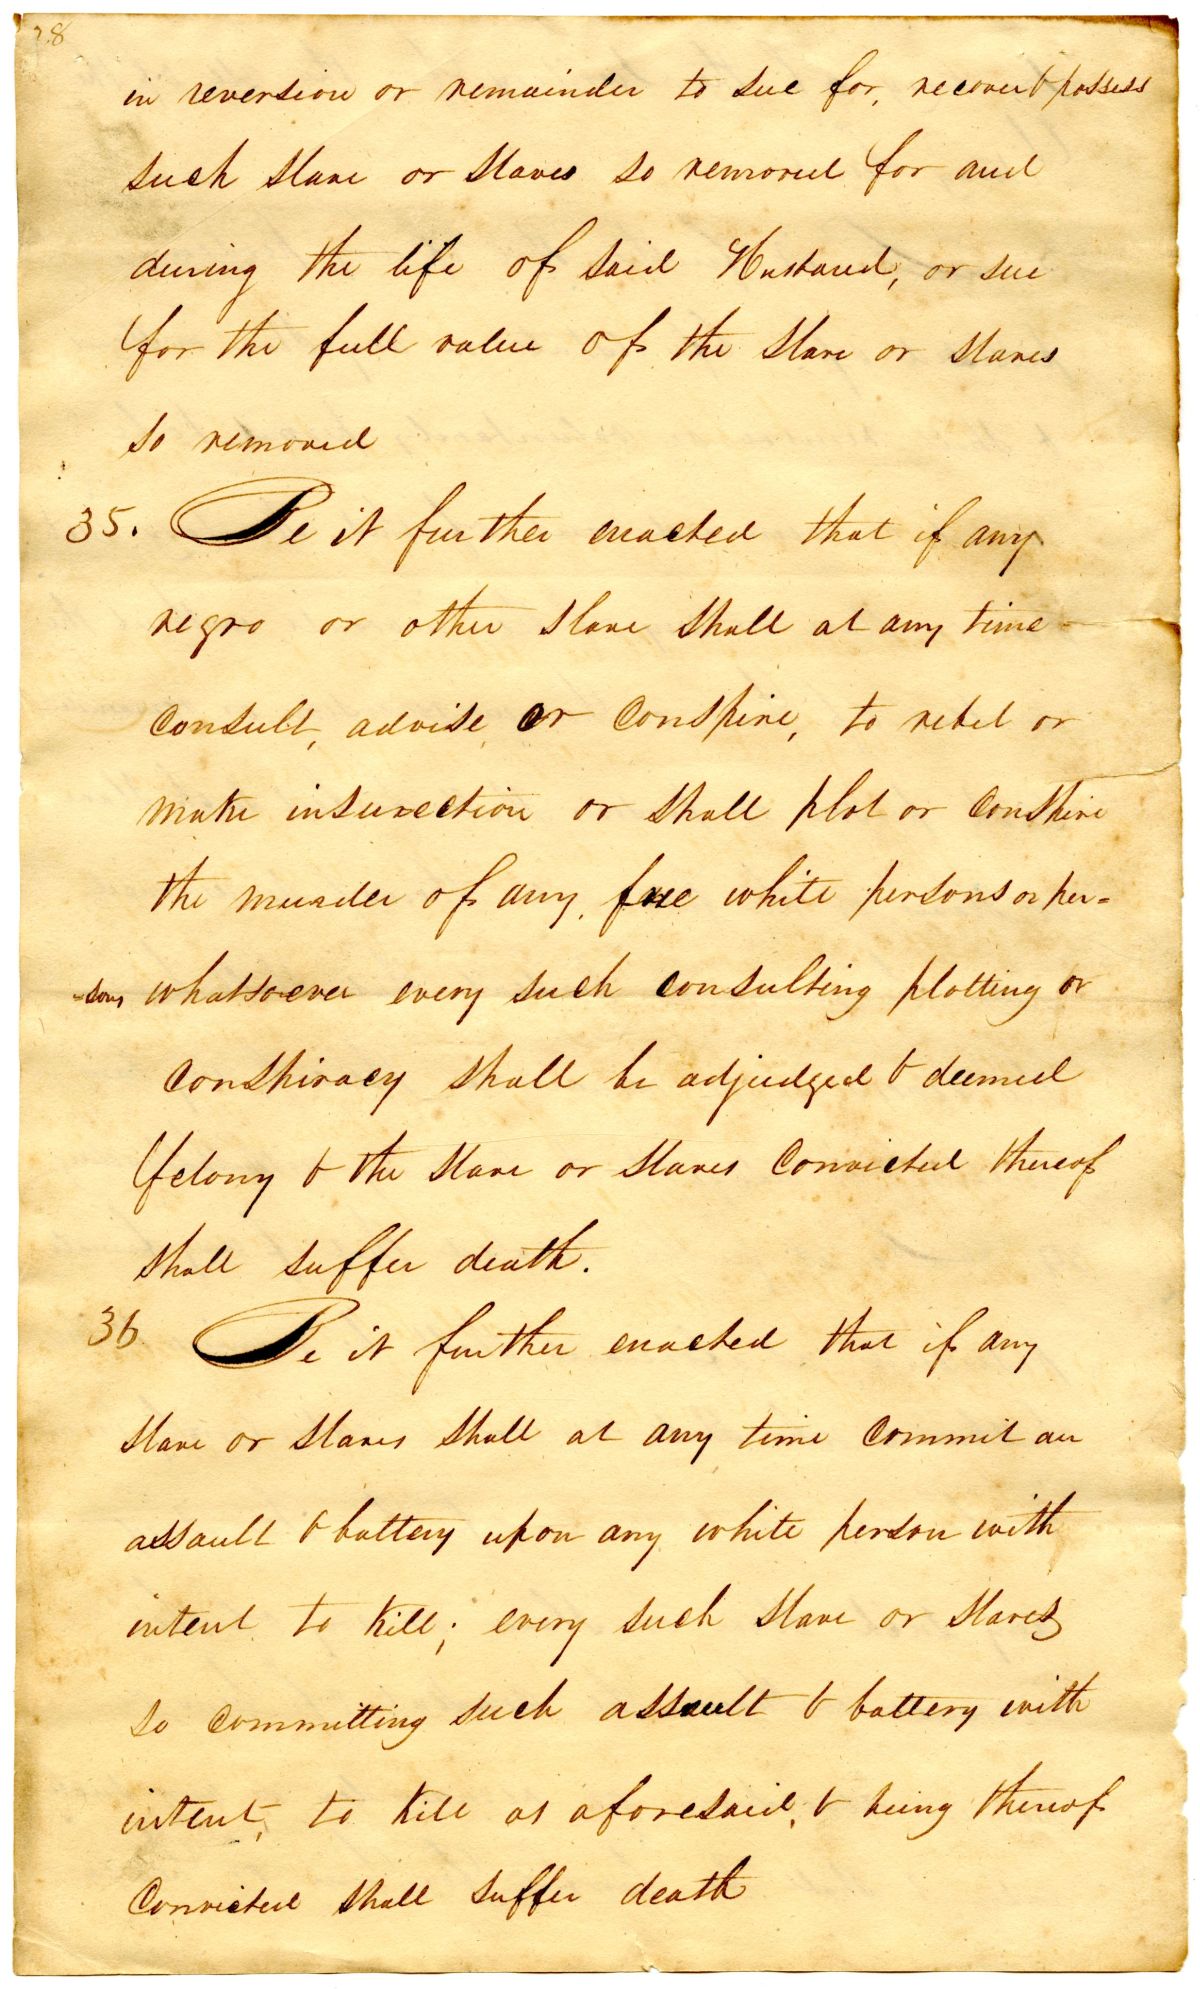 28
in reversion or remainder to sue for, recover & possess
such slave or slaves so removed for and
during the life of said Husband, or sue
for the full value of the slave or slaves
so removed
35. Be it further enacted that if any
negro or other slave shall at any time
consult, advise or conspire, to rebel or
make insurection or shall plot or conspire
the murder of any free white persons or per=
=sons whatsoever every such consulting plotting or
conspiracy shall be adjudged & deemed
felony & the slave or slaves convicted thereof
shall suffer death.
36 Be it further enacted that if any
slave or slaves shall at any time commit an
assault & battery upon any white person with
intent to kill; every such slave or slaves
so committing such assault & battery with
intent, to kill as aforesaid, & being thereof
convicted shall suffer death